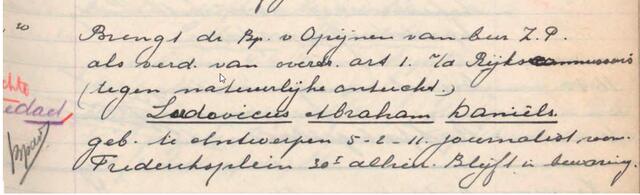 20
Brengt dr Bp. v Opijnen van bur Z.P.
als verd. van overtr. art 1. v/d Rijkscommissaris
(tegen natuurlijke ontucht.)
Ludovicus Abraham Daniëls.
geb. te Antwerpen 5-2-11. journalist won.
Frederiksplein 30I alhier. Blijft in bewaring.